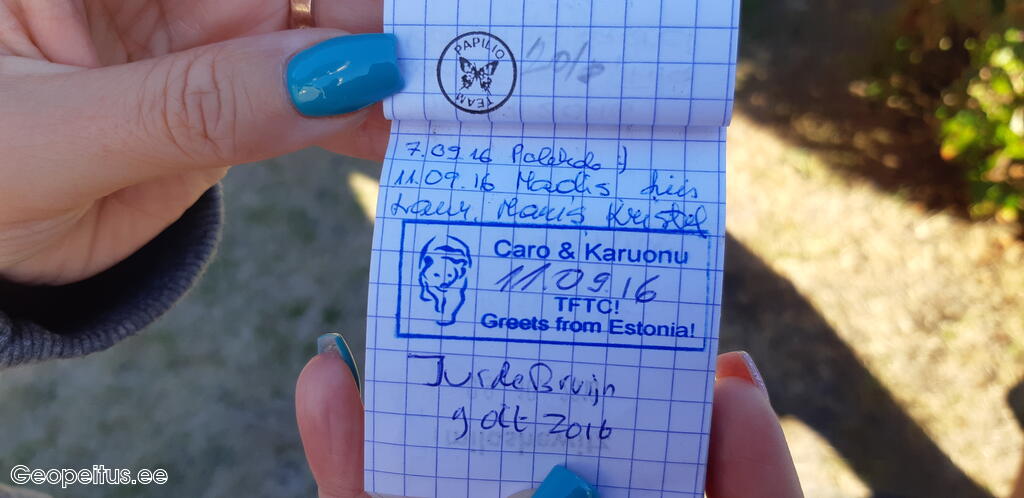 PAPILIO
TEAM
7.09.16
11.09.16 Madis
Maris, Kristel
Caro & Karuonu
11.09.16
TFTC!
Greets from Estonia!
JurdeBruijn
9 okt 2016
Geopeitus.ee